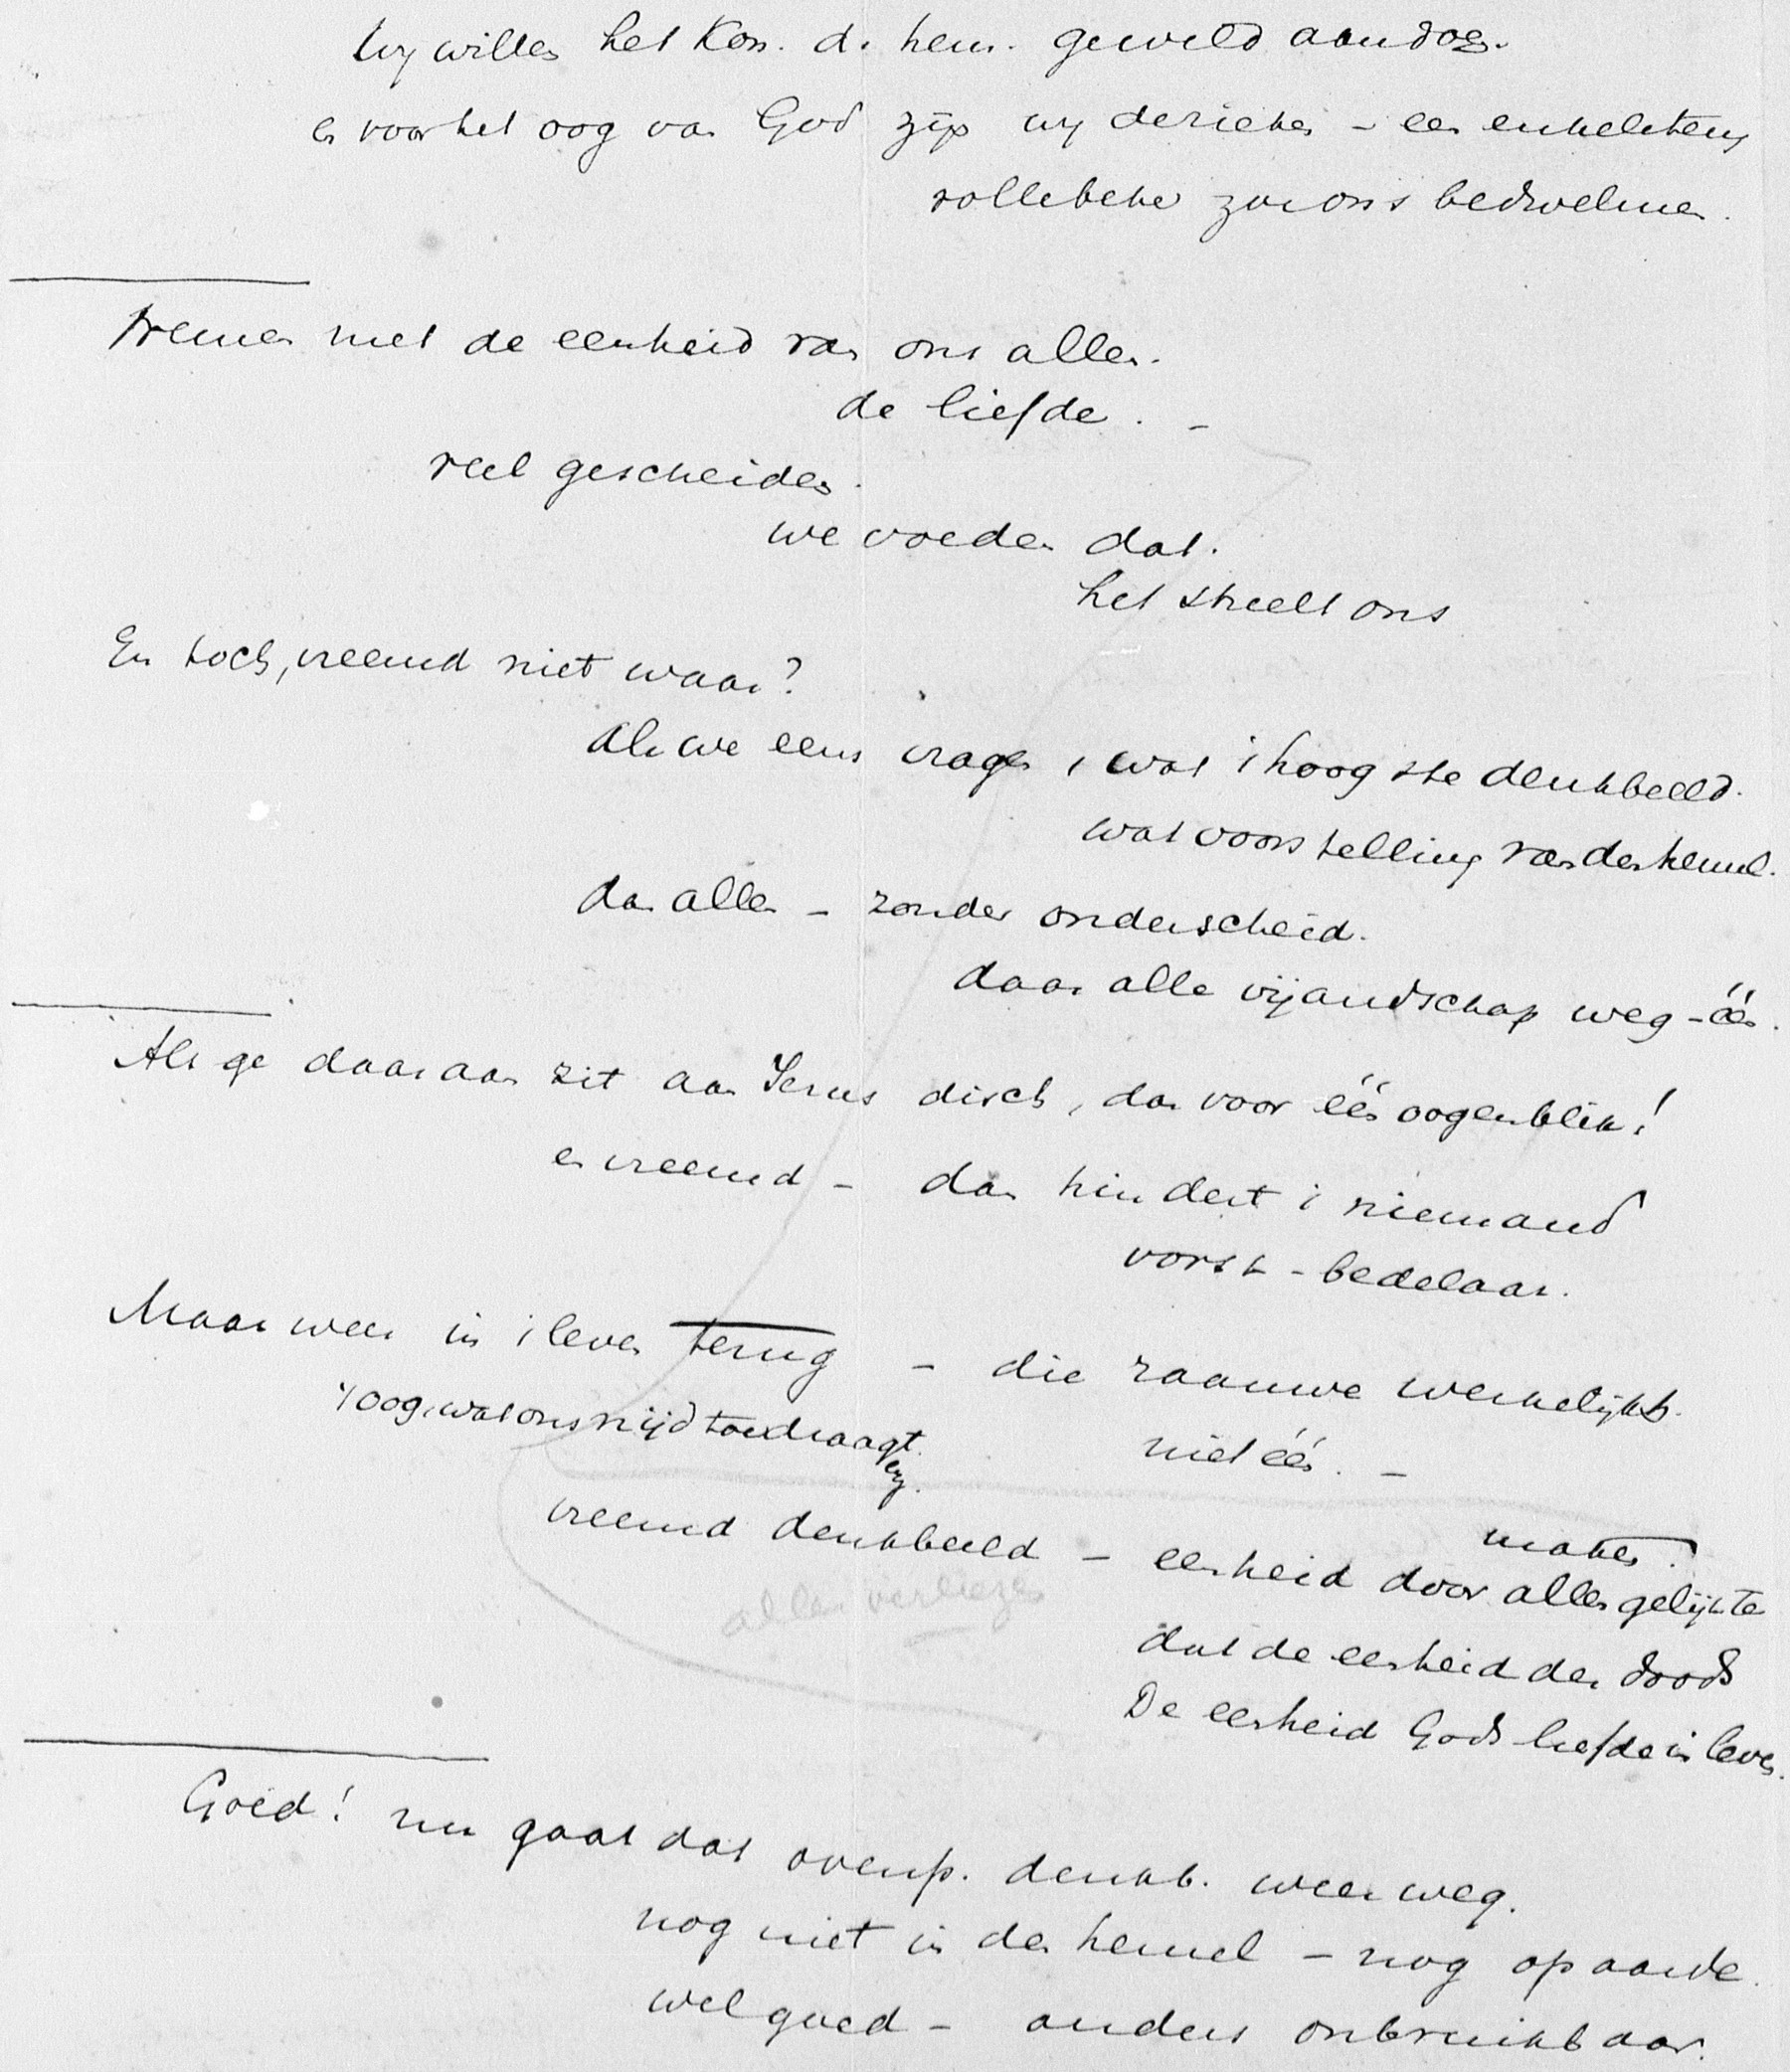 Wy willen het Kon. d. hem. geweld aandoen.
en voor het oog van God zijn wy derieken - een enkel teug
vollebeke zou ons bedwelmen.
niet de eenheid van ons allen.
de liefde. -
veel gescheiden.
we voeden dat.
het streelt ons
En toch, vreemd niet waar?
Als we eens vragen, wat 't hoogste denkbeeld.
wat voorstelling van den hemel.
dan allen - zonder onderscheid.
daar alle vijandschap weg - één.
Als ge daar aan zit aan Jezus disch, dan voor één oogenblik!
en vreemd - dan hindert 't niemand
vorst - bedelaar.
Maar weer in 't leven terug - die raauwe werkelijkh.
't oog, wat ons nijd toedraagt enz.
niet één. -
vreemd denkbeeld - eenheid door allen gelijk te
maken.
allen verliezen
dat de eenheid des doods
De eenheid Gods liefde in leven.
Goed! nu gaat dat oversp. denkb. weer weg.
nog niet in den hemel - nog op aarde.
wel goed - anders onbruikbaar.